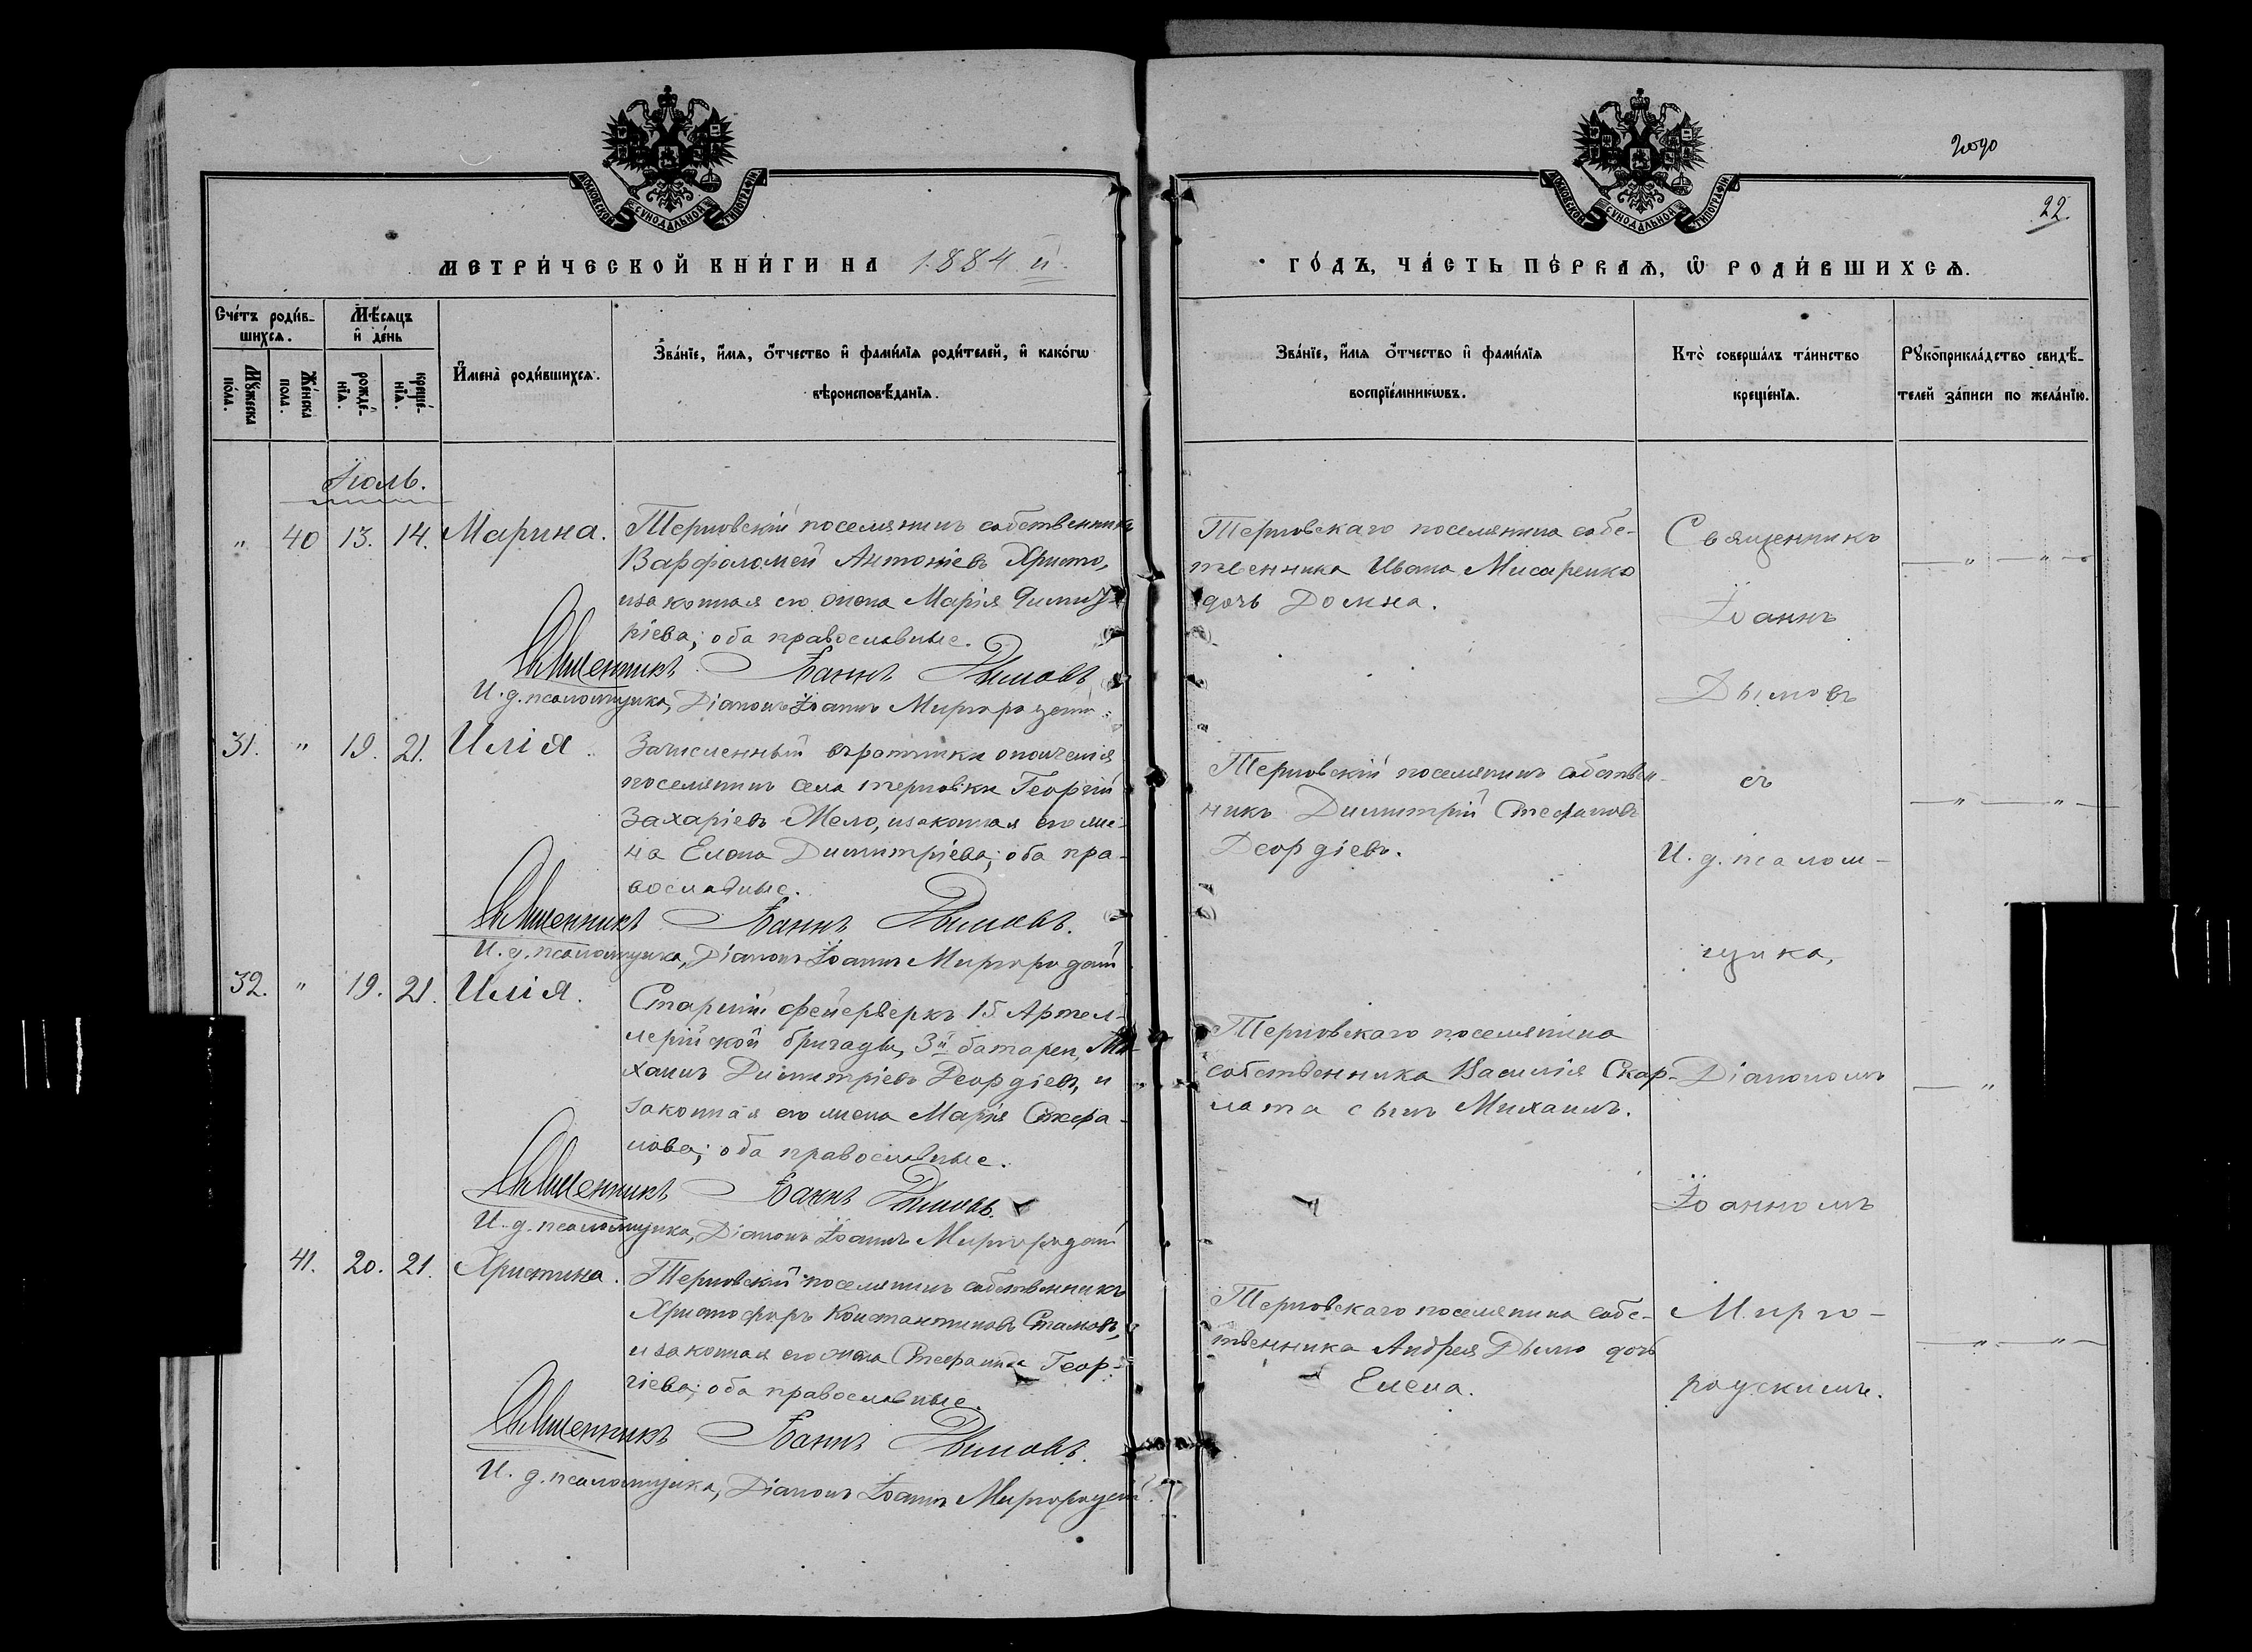 года
22.
МОСКОВСКОЙ СѴНОДАЛЬНОЙ ТИПОГРАФІИ
МОСКОВСКОЙ СѴНОДАЛЬНОЙ ТИПОГРАФІИ
МЕТРИ́ЧЕСКОЙ КНИ́ГИ НА 1884 й
ГО́ДЪ, ЧА́СТЬ ПЕ́РВАѦ, Ѡ РОДИ́ВШИХСѦ.
Сче́тъ роди́в-
шихсѧ.
Му́жеска
по́ла.
Же́нска
пола.
Мѣ́сяцъ
и де́нь
рожде́-
нїѧ.
креще́-
нїѧ.
И҆мена̀ роди́вшихсѧ.
Зва́нїе, и҆́мѧ, ѻ҆́тчество и҆ фами́лїѧ роди́телей, и҆ како́гѡ
вѣроисповѣ́данїѧ.
Зва́нїе, и҆́мѧ ѻ҆́тчество и҆ фами́лїѧ
воспрїе́мникѡвъ.
Кто̀ соверша́лъ та́инство
креще́нїѧ.
Рꙋкоприкла́дство свидѣ́-
телей за́писи по жела́нїю.
Іюль.
" 40 13. 14. Марина.
Терновскій поселянинъ собственникъ
Варфоломей Антоніевъ Христо,
и законная его жена Марія Димит-
ріева; оба православные.
Священникъ Іоаннъ Дымовъ
И. д. псаломщика, Діаконъ Іоаннъ Миргородскій
Терновскаго поселянина собс-
твенника Ивана Мисаренко
дочь Домна.
31. " 19. 21. Илія.
Зачисленный въ ратники ополченія
поселянинъ села Терновки Георгій
Захаріевъ Мело, и законная его же-
на Елена Димитріева; оба пра-
вославные.
Священникъ Іоаннъ Дымовъ.
И. д. псаломщика, Діаконъ Іоаннъ Миргородскій
Терновскій поселянинъ собствен-
никъ Димитрій Стефановъ
Деордіевъ.
32. " 19. 21. Илія.
Старшій фейерверкъ 15 Артел-
лерійской бригады, 3й батареи, Ми-
хаилъ Димитріевъ Деордіевъ, и
законная его жена Марія Стефа-
нова; оба православные.
Священникъ Іоаннъ Дымовъ.
И. д. псаломщика, Діаконъ Іоаннъ Миргородскій
Терновскаго поселянина
собственника Василія Скар-
лата сынъ Михаилъ.
41. 20. 21. Христина.
Терновскій поселянинъ собственникъ
Христофоръ Константиновъ Стамовъ,
и законная его жена Стефанида Геор-
гіева; оба православные.
Священникъ Іоаннъ Дымовъ.
И. д. псаломщика, Діаконъ Іоаннъ Миргородскій.
Терновскаго поселянина собс-
твенника Андрея Дымо дочь
Елена.
Священникъ
Іоаннъ
Дымовъ
съ
И. д. псалом-
щика,
Діакономъ
Іоанномъ
Мирго-
родскимъ.